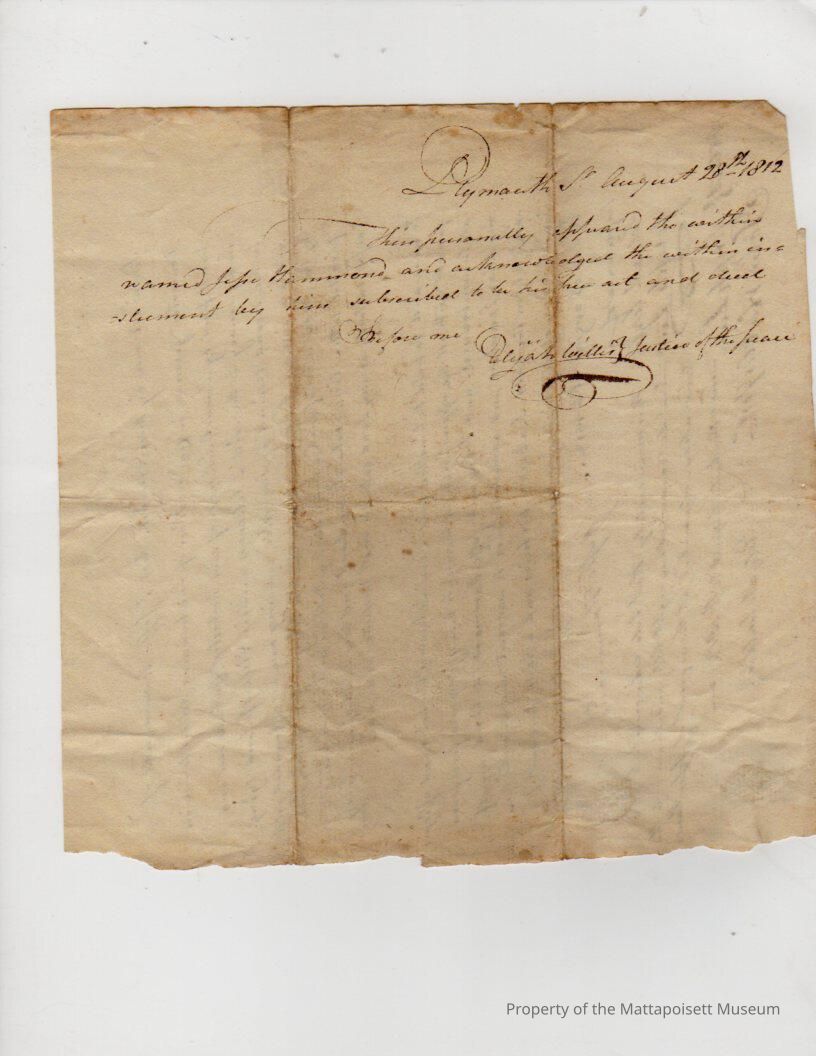 Plymouth Ss August 28th 1812
Then personally appeard the within
named Jesse Hammond and acknowledged the within in=
-strument by him subscribed to be his free act and deed
Before me Elijah Willis Justice of the peace
Property of the Mattapoisett Museum